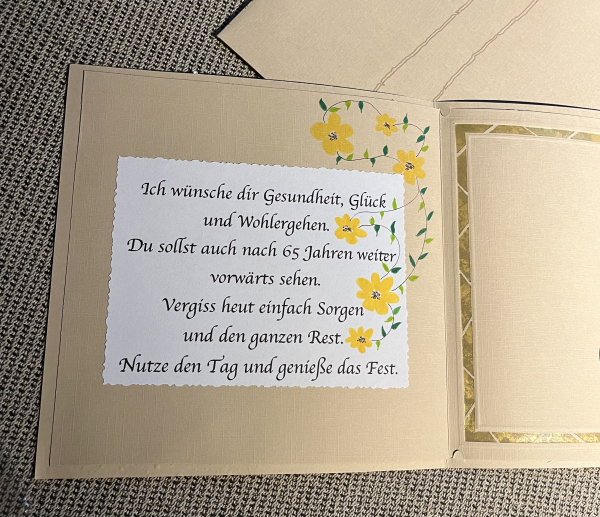 Ich wünsche dir Gesundheit, Glück
und Wohlergehen.
Du sollst auch nach 65 Jahren weiter
vorwärts sehen.
Vergiss heut einfach Sorgen
und den ganzen Rest.
Nutze den Tag und genieße das Fest.